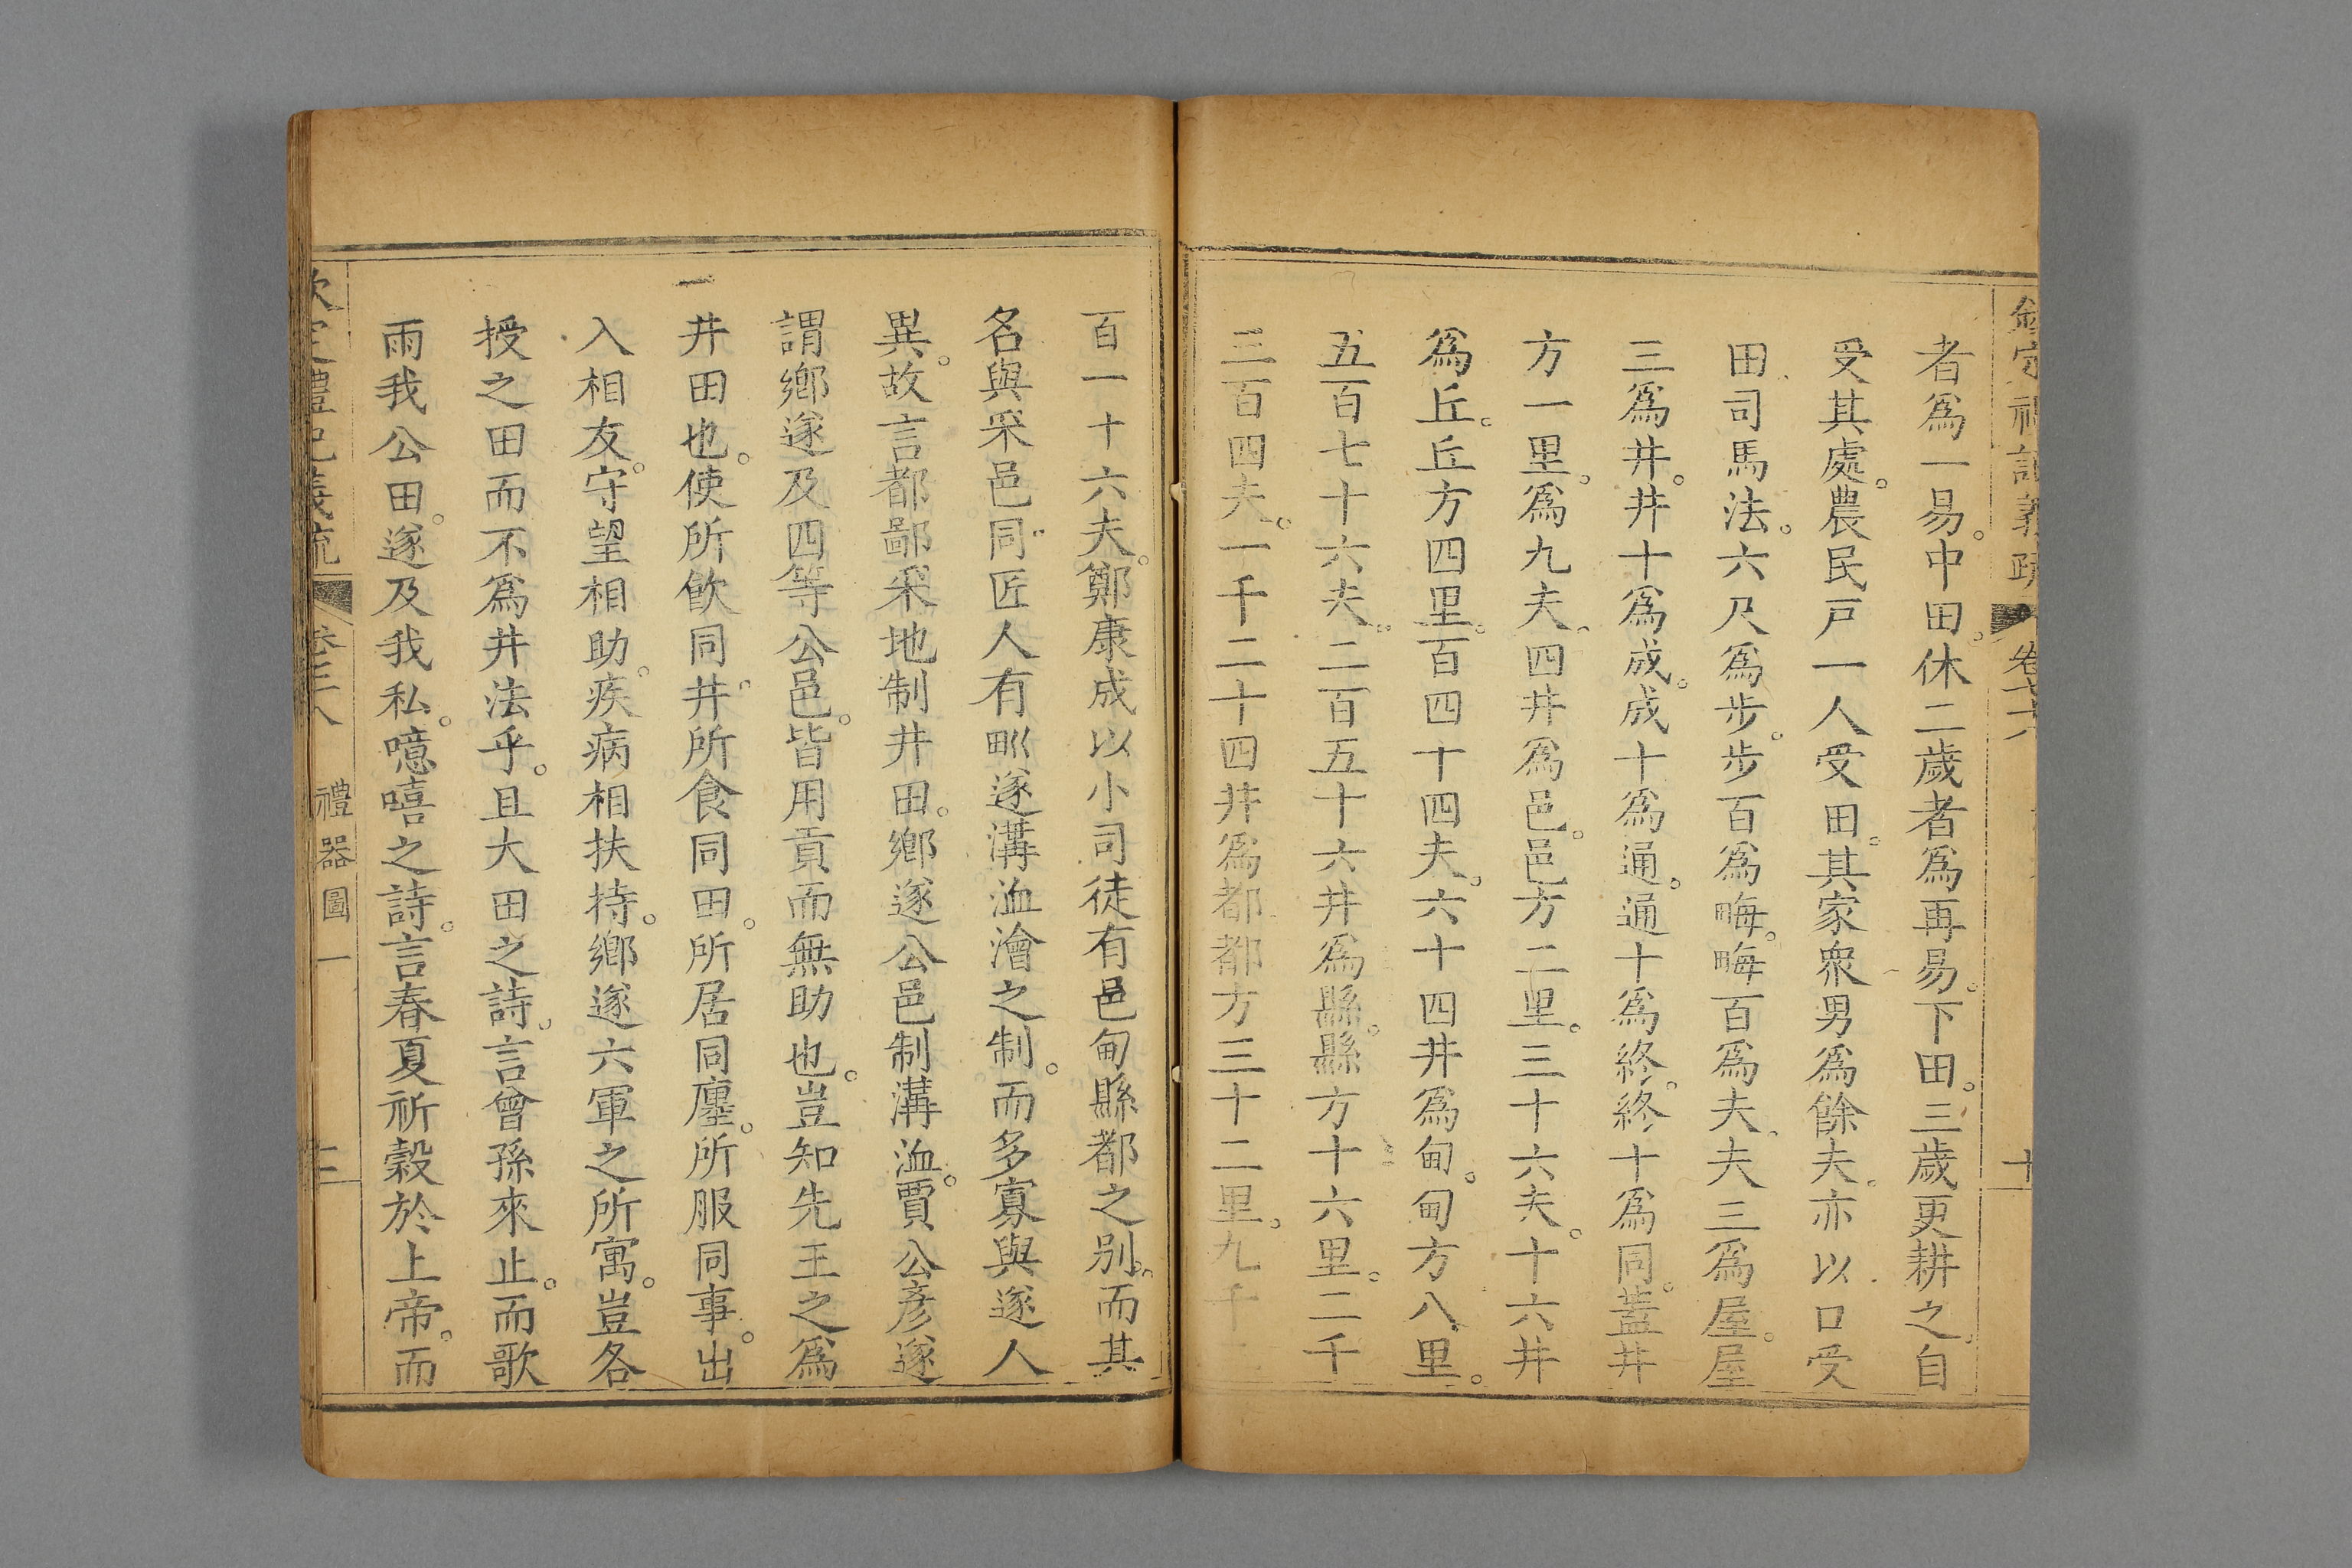 者爲一易。中田。休二歲者爲再易。下田。三歲更耕之。自
受其處。農民戶一人受田。其家衆男爲餘夫。亦以口受
田司馬法。六尺爲步。步百爲畮。畮百爲夫。夫三爲屋。屋
三爲井。井十爲成。成十爲通。通十爲終。終十爲同。蓋井
方一里。爲九夫。四井爲邑。邑方二里。三十六夫。十六井
爲丘。丘方四里。百四十四夫。六十四井爲甸。甸方八里。
五百七十六夫。二百五十六井爲縣。縣方十六里。二千
三百四夫。一千二十四井爲都。都方三十二里。九千
百一十六夫。鄭康成以小司徒有邑甸縣都之別。而其
名與采邑同。匠人有甽遂溝洫澮之制。而多寡與遂人
異。故言都鄙采地制井田。鄉遂公邑制溝洫。賈公彥遂
謂鄉遂及四等公邑。皆用貢而無助也。豈知先王之爲
井田也。使所飲同井。所食同田。所居同廛。所服同事。出
入相友。守望相助。疾病相扶持。鄉遂六軍之所寓。豈各
授之田而不爲井法乎。且大田之詩。言曾孫來止。而歌
雨我公田。遂及我私。噫嘻之詩。言春夏祈穀於上帝。而
禮器圖一